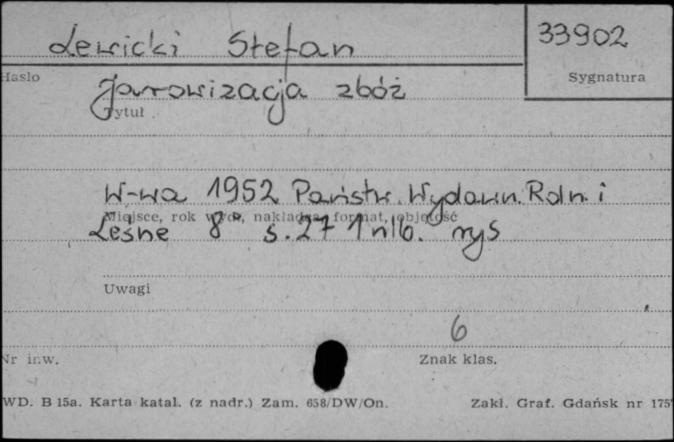 Lewicki Stefan
33902
Hasło
Sygnatura
Jarowizacja zbóż
Tytuł
W-wa 1952 Państw. Wydawn. Roln. i
Miejsce, rok wyd., nakładca, format, objętość
Leśne 8° s. 27 1 nlb. rys
Uwagi
6
Nr inw.
Znak klas.
WD. B 15a. Karta katal. (z nadr.) Zam. 658/DW/On.
Zakł. Graf. Gdańsk nr 175